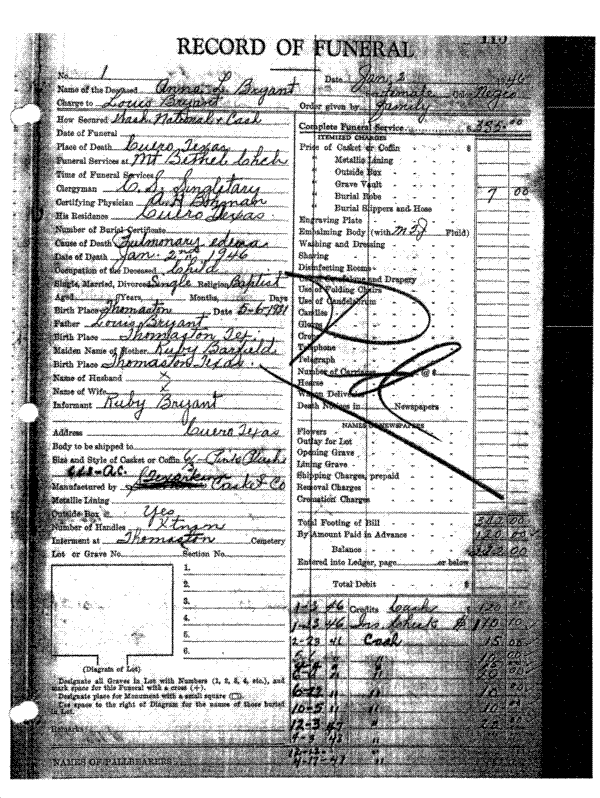 115
RECORD OF FUNERAL
No. 1 Date Jan. 2 1946
Name of the Deceased Anna L Bryant Female Or Negro
Charge to Louis Bryant Order given by Family
How Secured Wash. National & Cash
Date of Funeral
Place of Death Cuero Texas
Funeral Services at Mt Bethel Chch
Time of Funeral Services
Clergyman C. S. Singletary
Certifying Physician
His Residence Cuero Texas
Number of Burial Certificate
Cause of Death Pulmonary edema
Date of Death Jan. 2nd 1946
Occupation of the Deceased Child
Single, Married, Divorced Single Religion Baptist
Aged Years, Months, Days
Birth Place Thomaston Date 5-6-1931
Father Louis Bryant
Birth Place Thomaston Tex
Maiden Name of Mother Ruby Barfield
Birth Place Thomaston Texas
Name of Husband X
Name of Wife X
Informant Ruby Bryant
Address Cuero Texas
Body to be shipped to
Size and Style of Casket or Coffin 6- Pink Plush
Manufactured by Casket Co
Metallic Lining
Outside Box Yes
Number of Handles
Interment at Thomaston Cemetery
Lot or Grave No. Section No.
1.
2.
3.
4.
5.
6.
(Diagram of Lot)
Designate all Graves in Lot with Numbers (1, 2, 3, 4, etc.), and
mark space for this Funeral with a cross (+).
Designate place for Monument with a small square (□).
Use space to the right of Diagram for the names of those buried
in Lot.
Remarks
NAMES OF PALLBEARERS
Complete Funeral Service $ 355.00
ITEMIZED CHARGES
Price of Casket or Coffin $
" Metallic Lining
" Outside Box
" Grave Vault
" Burial Robe 7 00
" Burial Slippers and Hose
Engraving Plate
Embalming Body (with Fluid)
Washing and Dressing
Shaving
Disinfecting Rooms
Use of Catafalque and Drapery
Use of Folding Chairs
Use of Candelabrum
Candles
Gloves
Crepe
Telephone
Telegraph
Number of Carriages @ $
Hearse
Wagon Deliveries
Death Notices in Newspapers
NAMES OF NEWSPAPERS
Flowers
Outlay for Lot
Opening Grave
Lining Grave
Shipping Charges, prepaid
Removal Charges
Cremation Charges
Total Footing of Bill 362 00
By Amount Paid in Advance 120 00
Balance
Entered into Ledger, page or below
Total Debit $
1-3 46 Credits Cash $ 120 00
Ins Check $ 110 10
2-23 Cash 15 00
10-5 " " 10.00
12-3 47 "